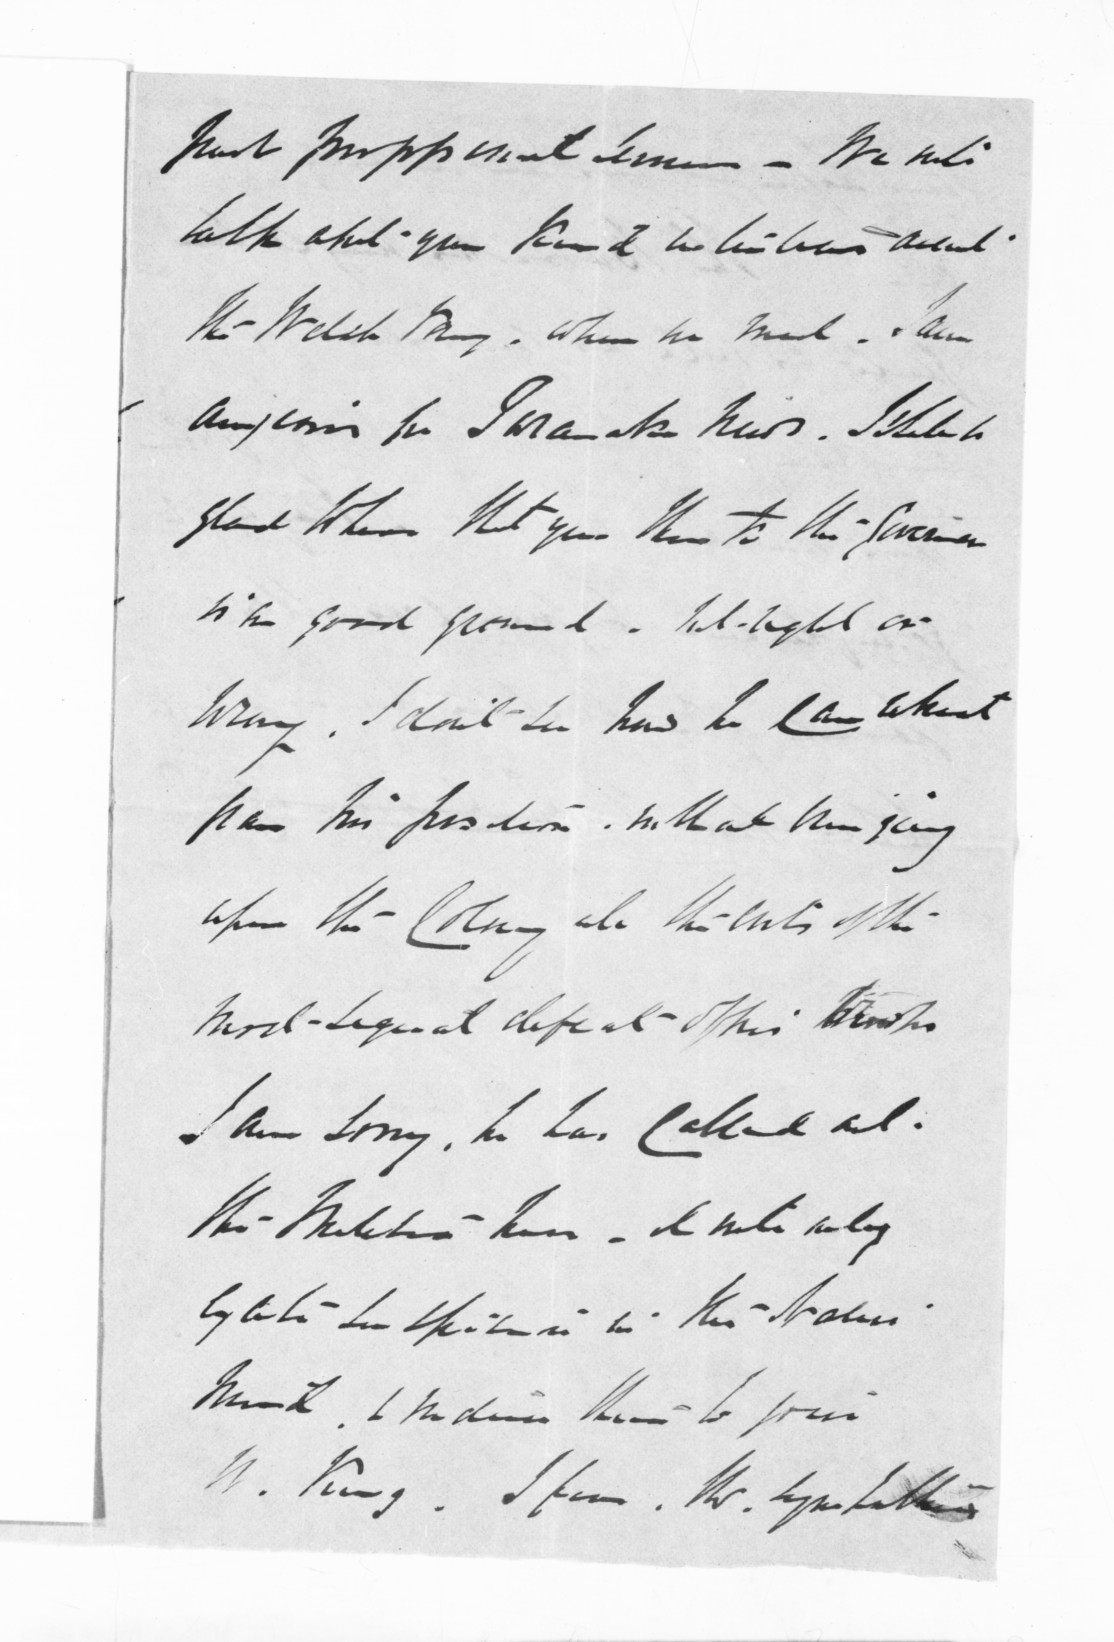 most proffserent terms - We will
talk abt your kind intentions about
the Welsh Pony. when we meet. I am
anxious for Taranaki News. I shall be
glad to hear that you think the Governor
is on good ground. but right or
wrong, I don't see how he can retreat
from his position. without bringing
upon the Colony all the evils of the
most signal defeat of his troops
I am sorry, he has called out
the Militia here - it will only
excite suspicions in the Native
mind, & induce them to join
W. King. I fear. the sympathies